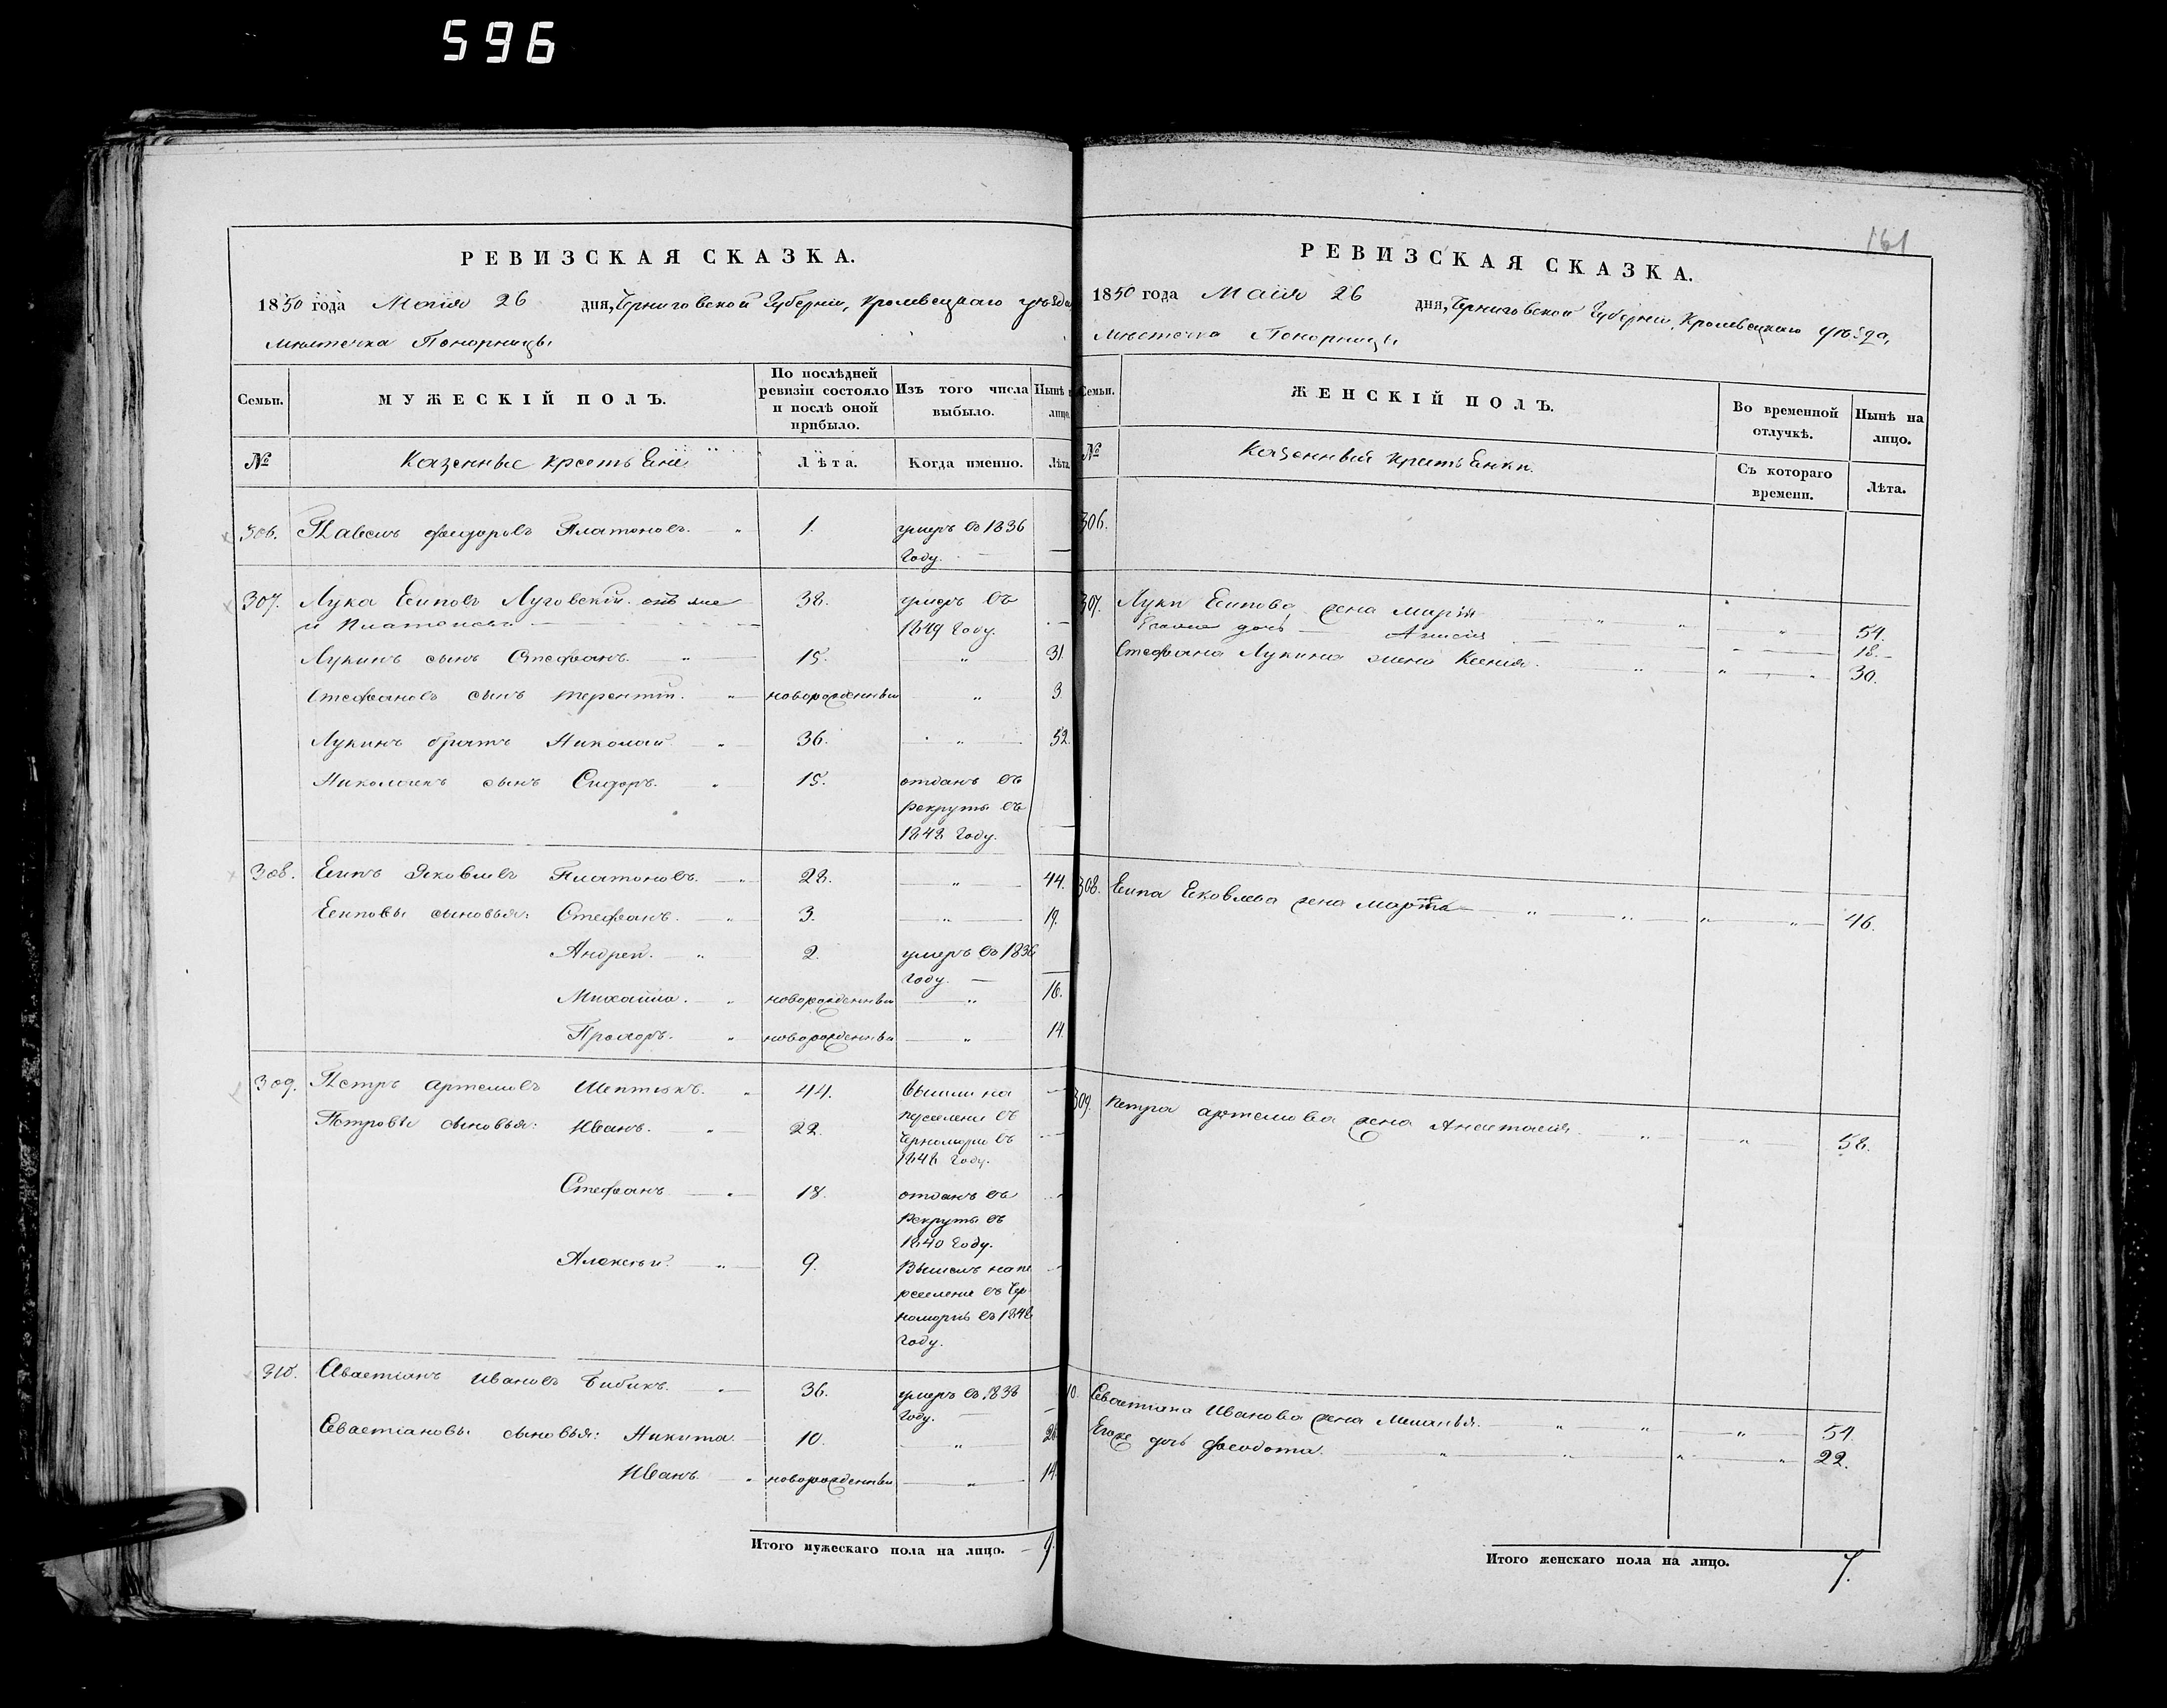 596
РЕВИЗСКАЯ СКАЗКА.
1850 года Маія 26 дня, Черниговской Губерніи, Кролевецкаго уѣзда
мѣстечка Понорницы
Семьи. МУЖЕСКІЙ ПОЛЪ. По послѣдней ревизіи состояло и послѣ оной прибыло. Изъ того числа выбыло. Нынѣ на лицо.
№ Казенные крестьяне Лѣта. Когда именно. Лѣта.
306. Павелъ Федоровъ Платоновъ. 1. умеръ въ 1836
году.
307. Лука Есиповъ Луговскій онъ же 38. умеръ въ
и Платоновъ 1849 году.
Лукинъ сынъ Стефанъ. 15. 31
Стефановъ сынъ Терентій. новорожденный 3.
Лукинъ братъ Николай 36. 52.
Николаевъ сынъ Сидоръ. 15. отданъ въ
рекруты въ
1848 году.
308. Есипъ Яковлевъ Платоновъ. 28. 44.
Есиповы сыновья: Стефанъ. 3. 19.
Андрей. 2. умеръ въ 1836
году.
Михайло. новорожденный 16.
Прохоръ. новорожденный 14.
309. Петръ Артемовъ Шептюкъ. 44. вышли на
Петровы сыновья: Иванъ. 22. переселение въ
Черноморию въ
1848 году.
Стефанъ 18. отданъ въ
рекруты въ
1840 году.
Алексѣй. 9. Вышелъ на пе
реселение въ Чер
номорию въ 1848
году.
310. Авастіанъ Ивановъ Бибикъ. 36. умеръ въ 1838
году.
Севастіановы сыновья: Никита. 10. 26
Иванъ. новорожденный 14.
Итого мужескаго пола на лицо. 9.
161
РЕВИЗСКАЯ СКАЗКА.
1850 года Маія 26 дня, Черниговской Губерніи, Кролевецкаго уѣзда,
мѣстечка Понорницы
Семьи. ЖЕНСКІЙ ПОЛЪ. Во временной отлучкѣ. Нынѣ на лицо.
№ Казенныя крестьянки. Съ котораго времени. Лѣта.
306.
307. Луки Есипова жена Марія 54.
дочь 18.
Стефана Лукина жена Ксенія. 30.
308. Есипа Яковлева жена Марѳа 46.
309. Петра Артемова жена Анастасія 58.
310. Севастіана Иванова жена Меланья. 54.
Егоже дочь Феодота. 22.
Итого женскаго пола на лицо. 7.